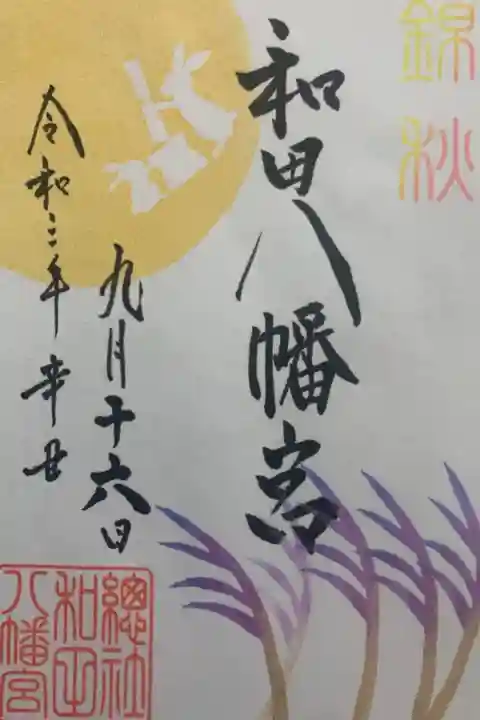 錦秋
和田八幡宮
九月十六日
令和三年 辛丑
總社
和田
八幡宮